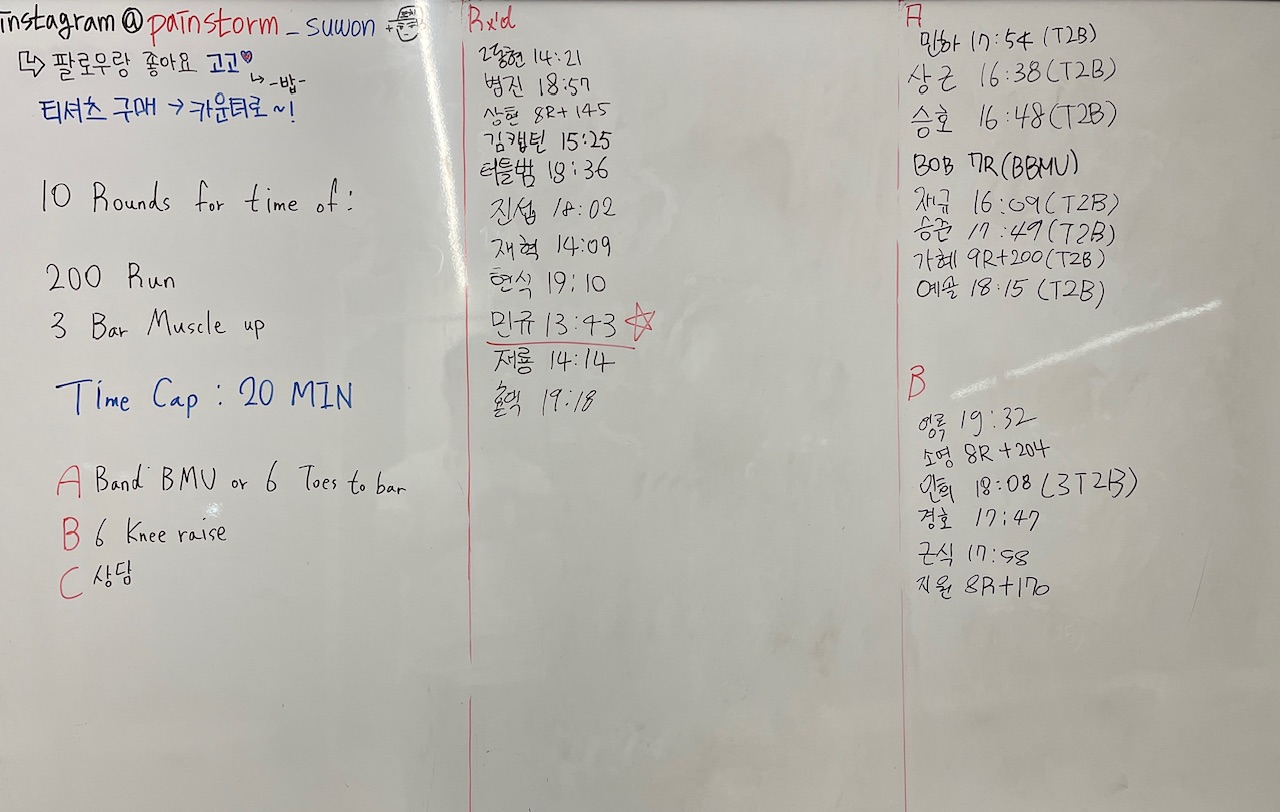 instagram@painstorm_suwon
팔로우랑 좋아요 고고
-밥-
티셔츠 구매 → 카운터로~!
10 Rounds for time of:
200 Run
3 Bar Muscle up
Time Cap : 20 MIN
A Band BMU or 6 Toes to bar
B 6 Knee raise
C 상담
Rx'd
14:21
범진 18:57
상현 8R+145
김캡틴 15:25
터틀밤 18:36
진섭 18:02
재혁 14:09
현식 19:10
민규 13:43
재룡 14:14
19:18
A
민하 17:54 (T2B)
상근 16:38 (T2B)
승호 16:48 (T2B)
BOB 7R (BBMU)
재규 16:09 (T2B)
승준 17:49 (T2B)
가혜 9R+200 (T2B)
예슬 18:15 (T2B)
B
영록 19:32
소영 8R+204
인희 18:08 (3T2B)
경호 17:47
근식 17:58
지원 8R+170